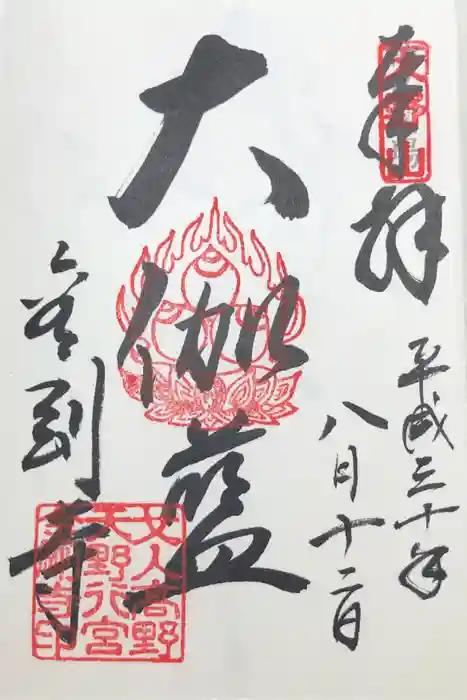 奉拝
平成三十年
八月十二日
大伽藍
金剛寺
女人高野
天野行宮
金剛寺印